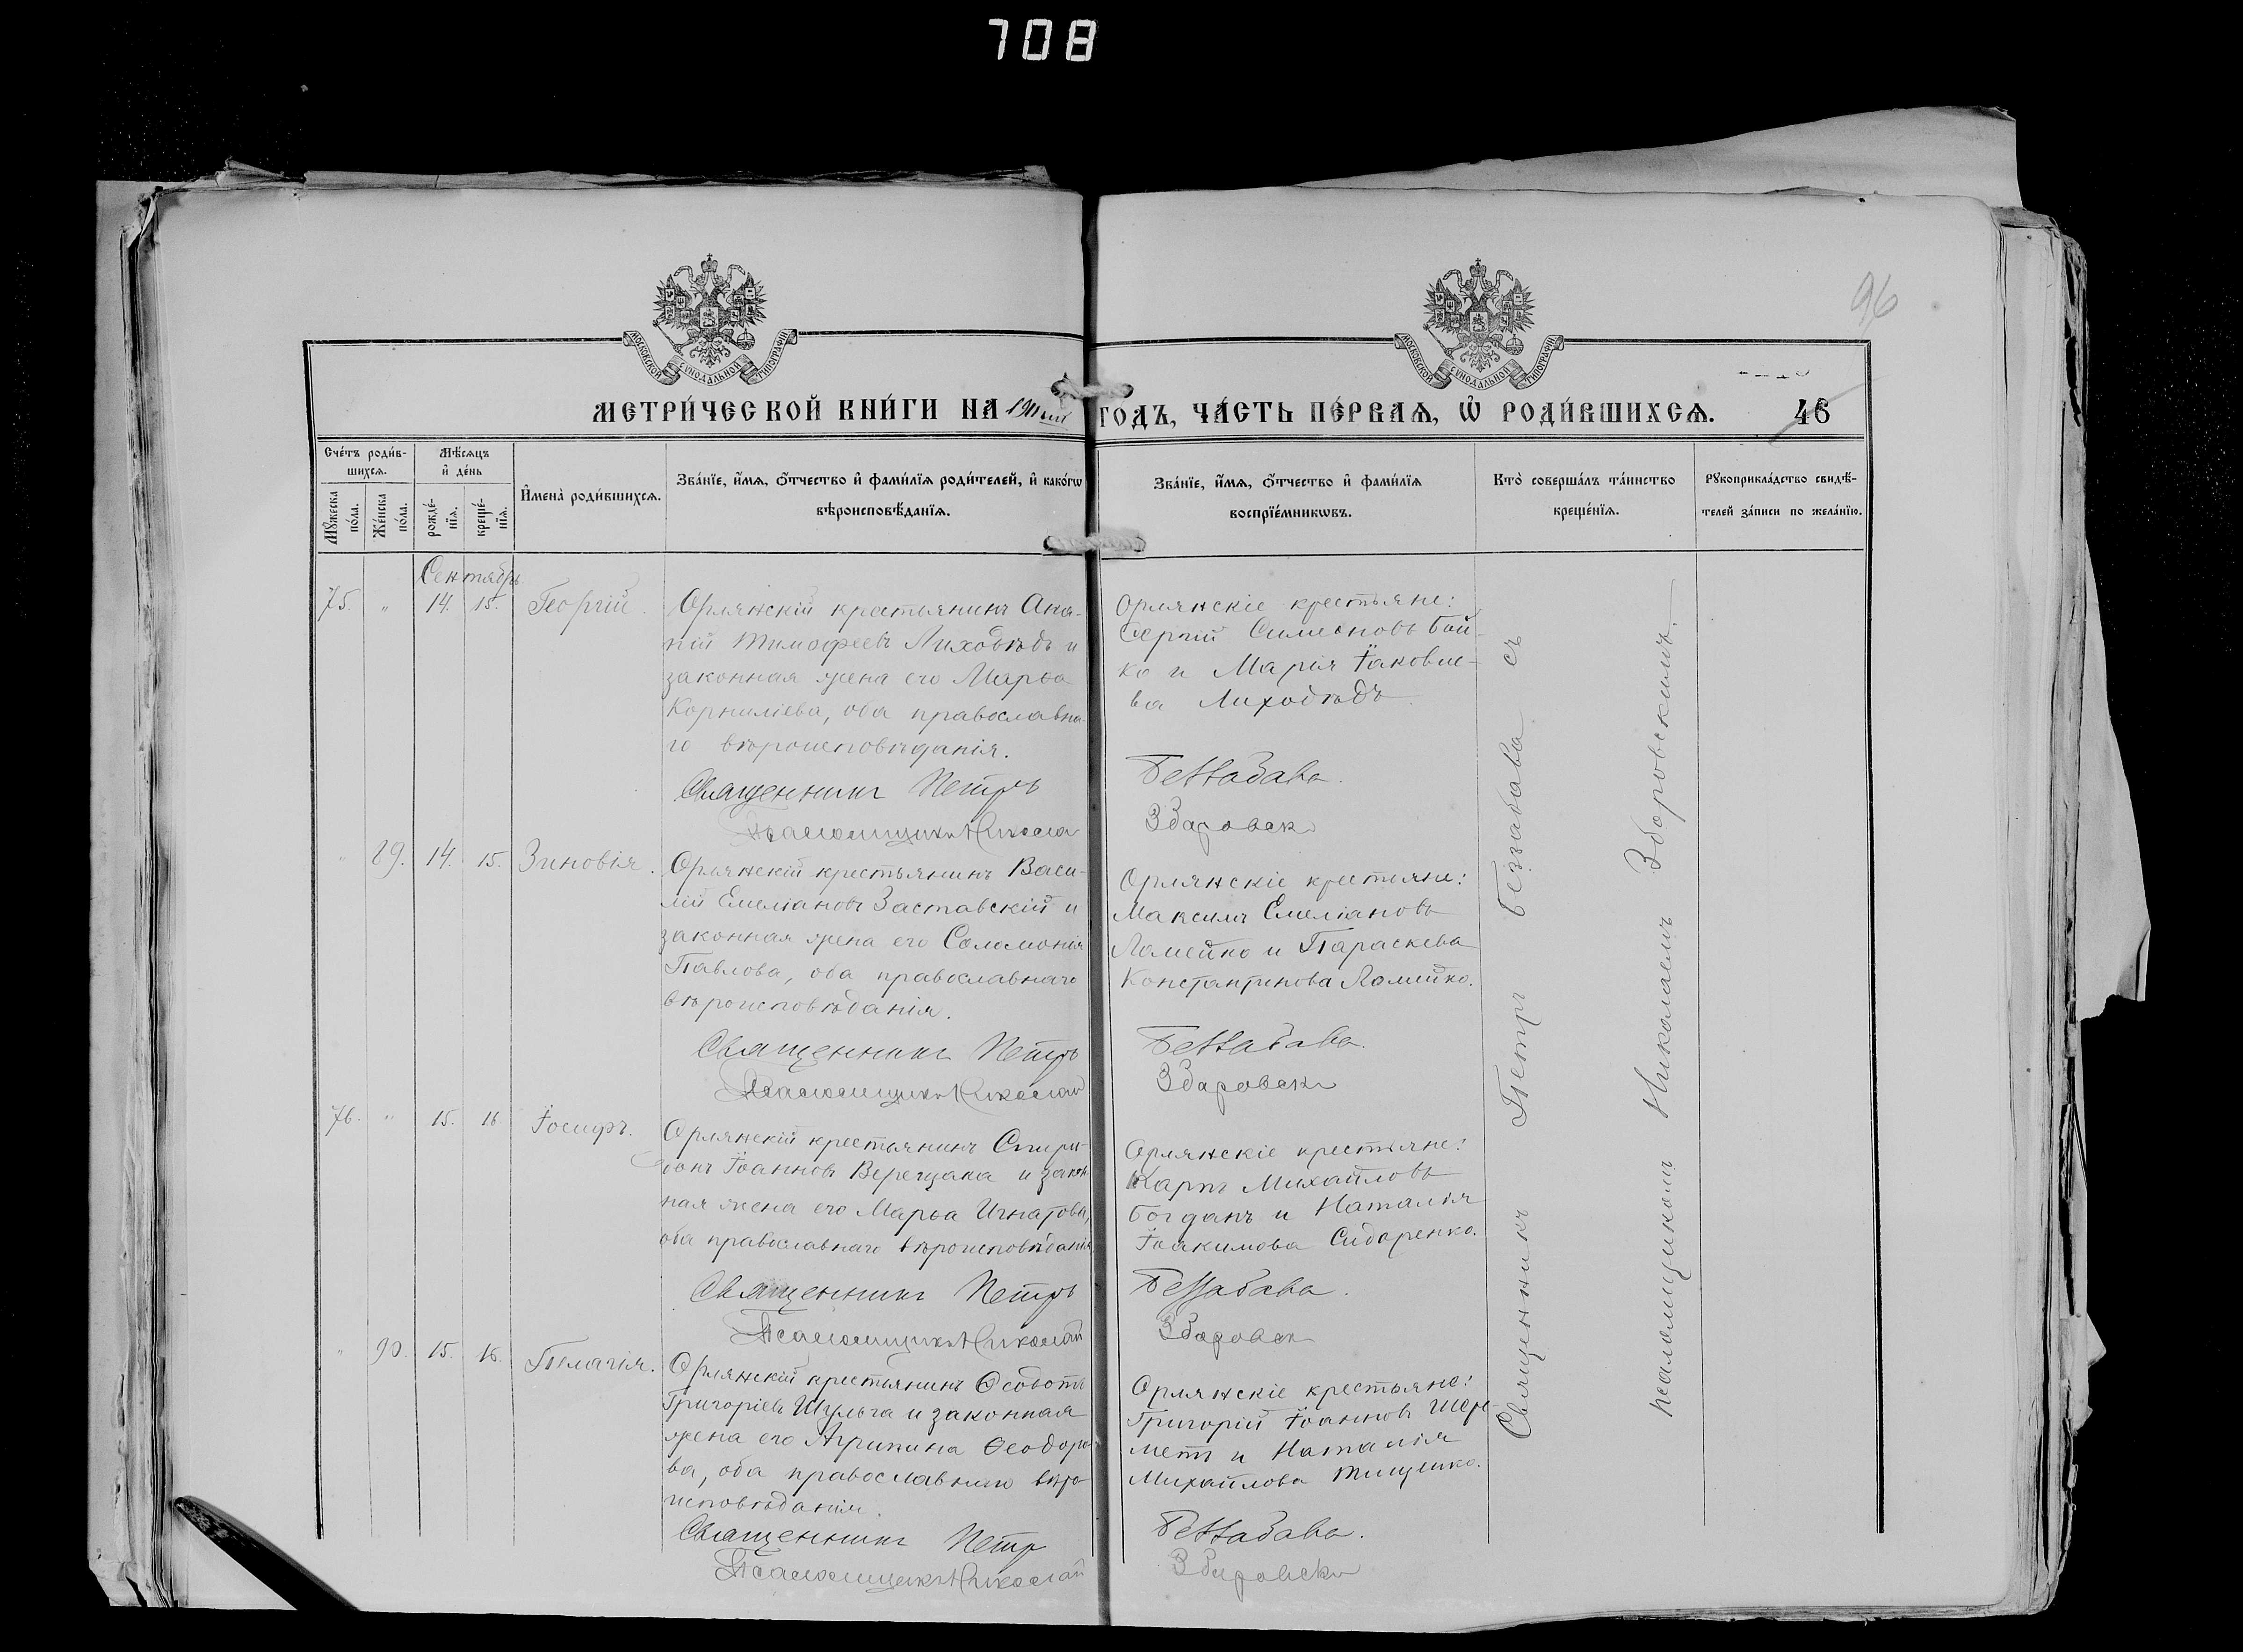 708
96
МОСКОВСКОЙ СѴНОДАЛЬНОЙ ТИПОГРАФІИ
МОСКОВСКОЙ СѴНОДАЛЬНОЙ ТИПОГРАФІИ
МЕТРИ́ЧЕСКОЙ КНИ́ГИ НА 1911 ГОДЪ, ЧА́СТЬ ПЕ́РВАЯ, Ѡ҆ РОДИ́ВШИХСѦ. 46
Сче́тъ роди́в-
шихсѧ.
Мꙋ́жеска по́ла.
Же́нска по́ла.
Мѣ́сѧцъ и҆ де́нь
рожде́-
нїѧ.
креще́-
нїѧ.
И҆мена̀ роди́вшихсѧ.
Зва́нїе, и҆́мѧ, ѻ҆́тчество и҆ фами́лїѧ роди́телей, и҆ како́гѡ
вѣроисповѣ́данїѧ.
Зва́нїе, и҆́мѧ, ѻ҆́тчество и҆ фами́лїѧ
воспрїе́мникѡвъ.
Кто̀ соверша́лъ та́инство
креще́нїѧ.
Рꙋкоприкла́дство свидѣ́-
телей за́писи по жела́нїю.
Сентябрь
75. " 14. 15. Георгій.
Орлянскій крестьянинъ Ана-
ній Тимофеевъ Лиходѣдъ и
законная жена его Марѳа
Корниліева, оба православна-
го вѣроисповѣданія.
Священникъ Петръ
Псаломщикъ Никола
Орлянскіе крестьяне:
Сергій Симеоновъ Бой-
ко и Марія Іаковле-
ва Лиходѣдъ
Беззабава.
Зборовск
" 89. 14. 15. Зиновія.
Орлянскій крестьянинъ Васи-
лій Емеліановъ Заставскій и
законная жена его Соломонія
Павлова, оба православнаго
вѣроисповѣданія.
Священникъ Петръ
Псаломщикъ Николай
Орлянскіе крестьяне:
Максимъ Емеліановъ
Ломейко и Параскева
Константинова Ломейко.
Беззабава.
Зборовск
76. " 15. 16. Іосифъ.
Орлянскій крестьянинъ Спири-
донъ Іоанновъ Верещака и закон-
ная жена его Марѳа Игнатова,
оба православнаго вѣроисповѣданія
Священникъ Петръ
Псаломщикъ Николай
Орлянскіе крестьяне:
Карпъ Михайловъ
Богданъ и Наталія
Іоакимова Сидоренко.
Беззабава.
Зборовск
" 90. 15. 16. Пелагія.
Орлянскій крестьянинъ Ѳеодотъ
Григоріевъ Шульга и законная
жена его Агрипина Ѳеодоро-
ва, оба православнаго вѣро-
исповѣданія.
Священникъ Петр
Псаломщикъ Николай
Орлянскіе крестьяне:
Григорій Іоанновъ Шере-
метъ и Наталія
Михайлова Тищенко.
Беззабава.
Зборовск
Священникъ Петръ Беззабава съ
псаломщикомъ Николаемъ Зборовскимъ.